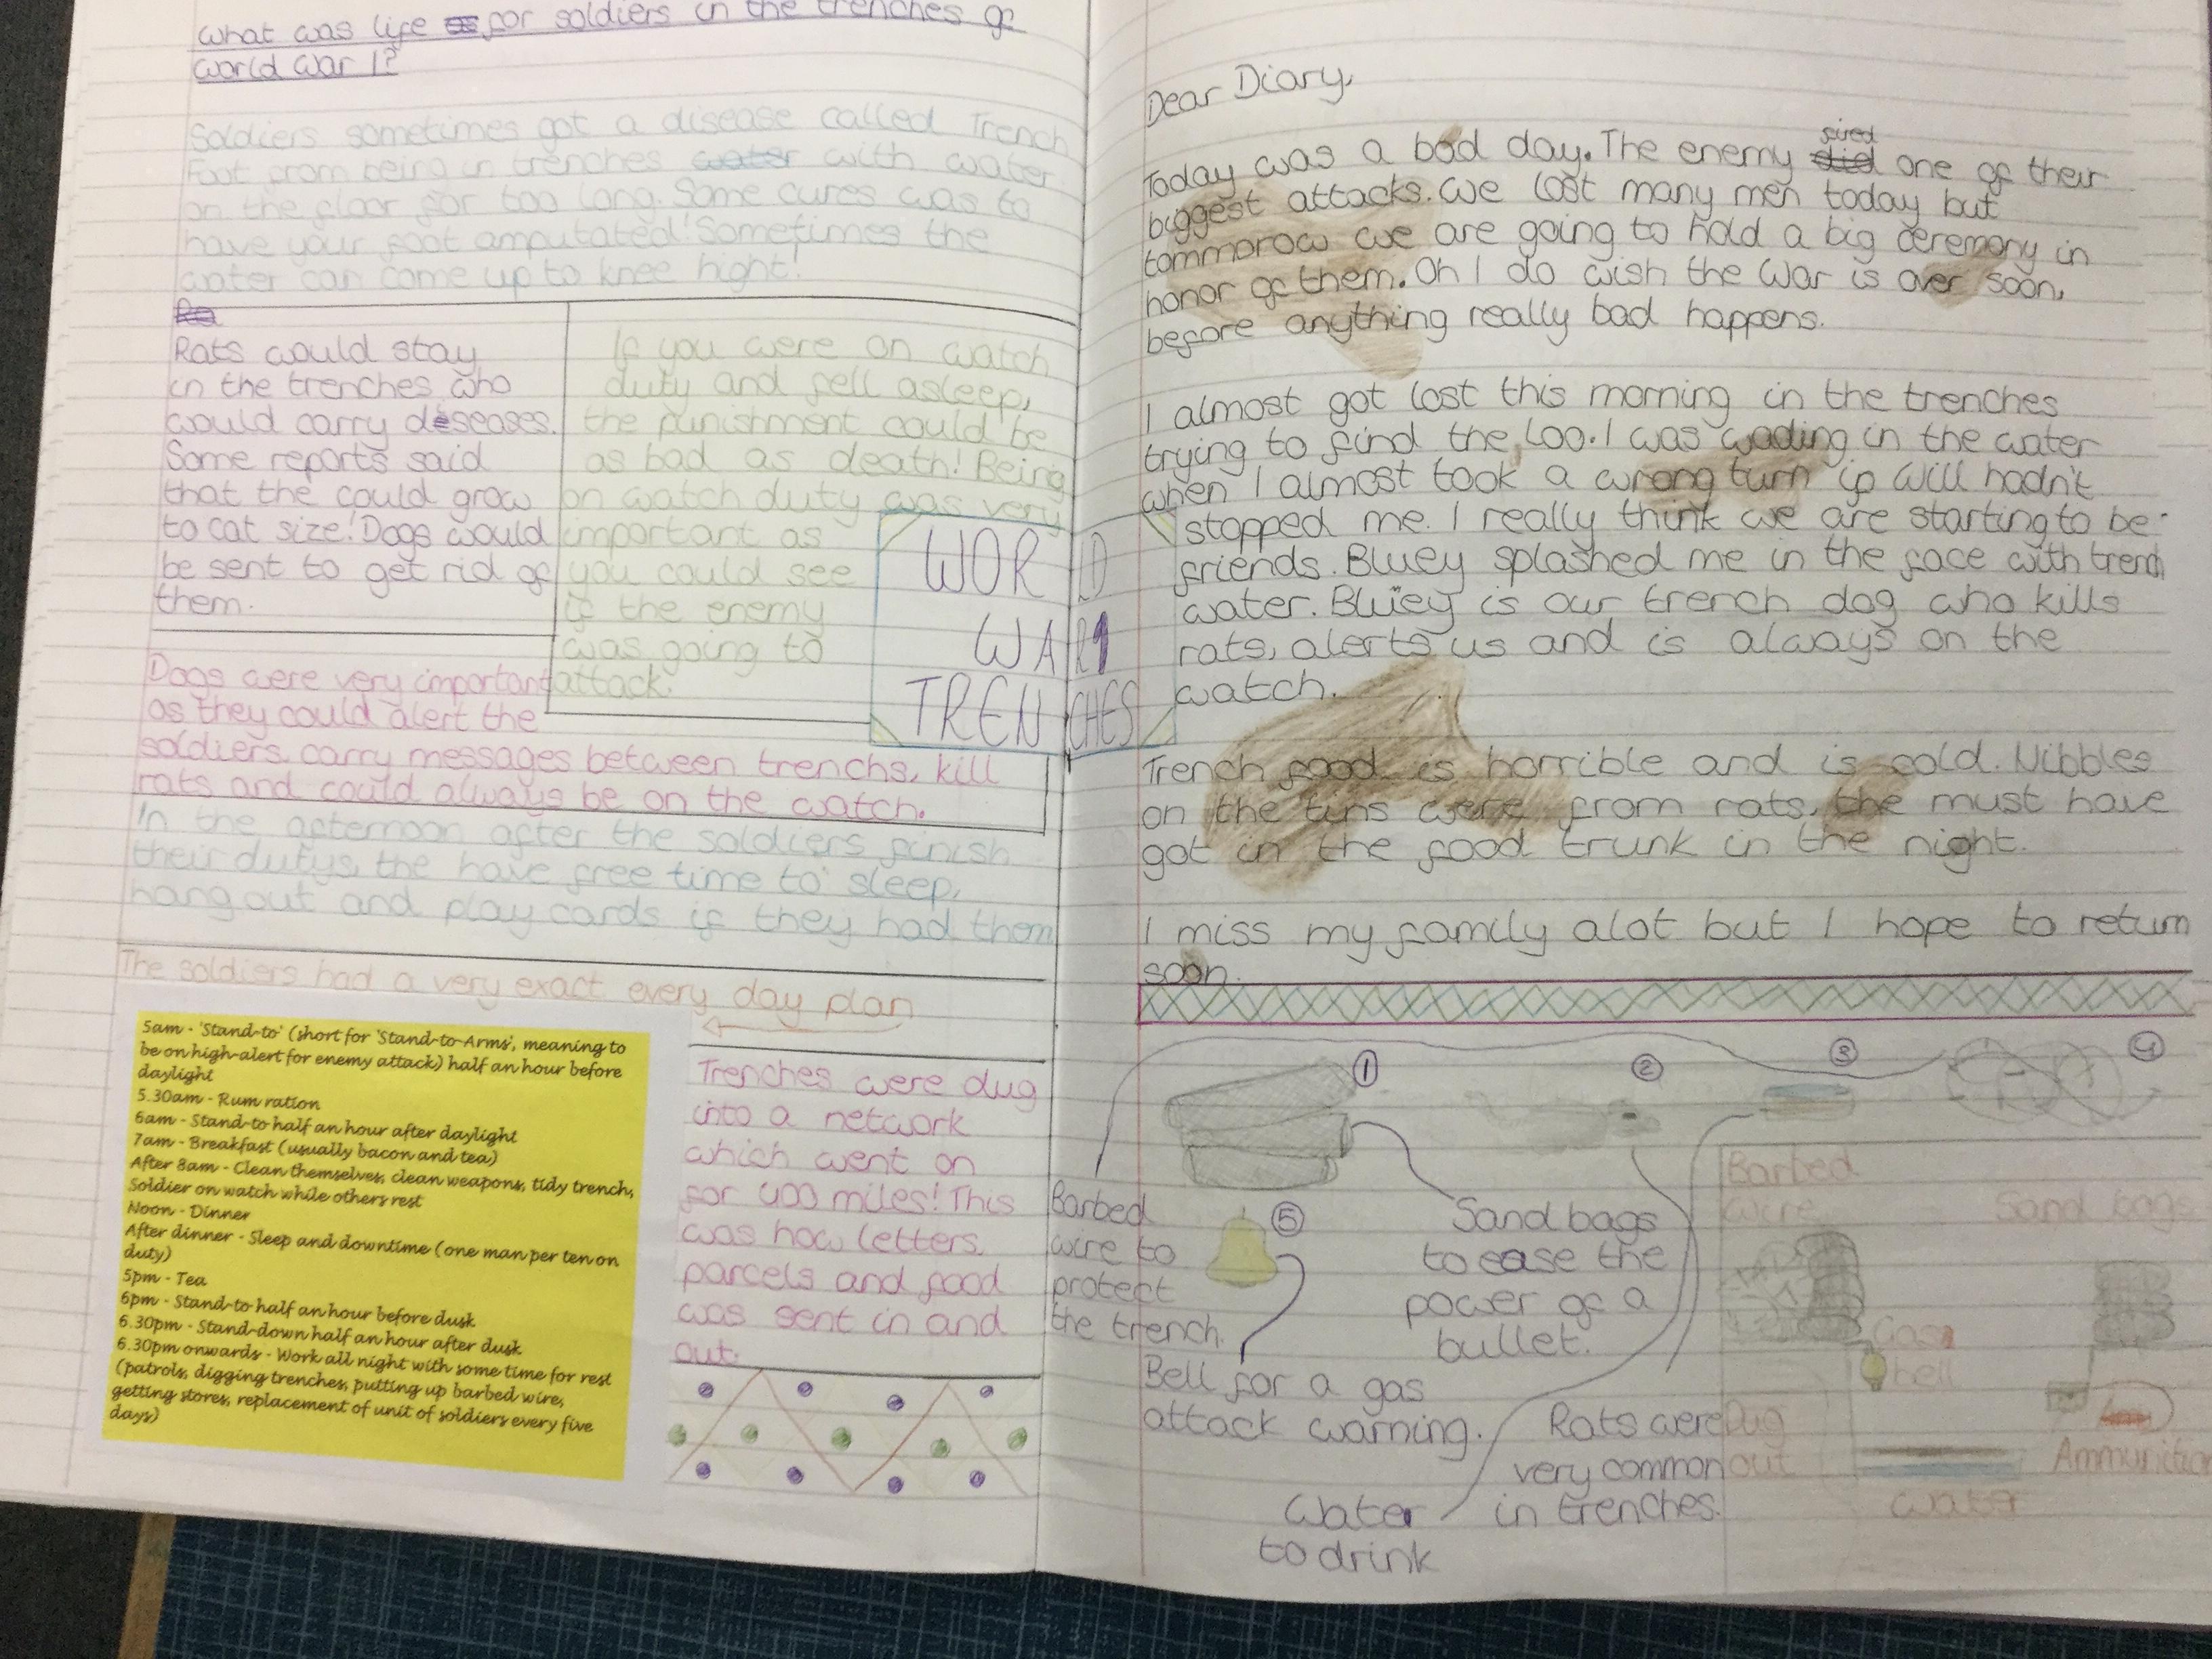 What was life for soldiers in the trenches of
World War 1?
Soldiers sometimes got a disease called Trench
Foot from being in trenches water with water
on the floor for too long. Some cures was to
have your foot amputated! Sometimes the
water can come up to knee hight!
Ra
Rats would stay
in the trenches who
would carry diseases.
Some reports said
that the could grow
to cat size! Dogs would
be sent to get rid of
them.
If you were on watch
duty and fell asleep,
the punishment could be
as bad as death! Being
on watch duty was very
important as
you could see
if the enemy
was going to
attack.
WORLD
WAR 1
TRENCHES
Dogs were very important
as they could alert the
soldiers, carry messages between trenchs, kill
rats and could always be on the watch.
In the afternoon after the soldiers finish
their dutys, the have free time to sleep,
hang out and play cards if they had them
The soldiers had a very exact every day plan
5am - 'Stand-to' (short for 'Stand-to-Arms', meaning to
be on high-alert for enemy attack) half an hour before
daylight
5.30am - Rum ration
6am - Stand-to half an hour after daylight
7am - Breakfast (usually bacon and tea)
After 8am - Clean themselves, clean weapons, tidy trench,
Soldier on watch while others rest
Noon - Dinner
After dinner - Sleep and downtime (one man per ten on
duty)
5pm - Tea
6pm - Stand-to half an hour before dusk
6.30pm - Stand-down half an hour after dusk
6.30pm onwards - Work all night with some time for rest
(patrols, digging trenches, putting up barbed wire,
getting stores, replacement of unit of soldiers every five
days)
Trenches were dug
into a network
which went on
for 400 miles! This
was how letters
parcels and food
was sent in and
out.
Dear Diary,
Today was a bad day. The enemy did fired one of their
biggest attacks. We lost many men today but
tommorow we are going to hold a big ceremony in
honor of them. Oh I do wish the War is over soon,
before anything really bad happens.
I almost got lost this morning in the trenches
trying to find the loo. I was wading in the water
when I almost took a wrong turn if Will hadn't
stopped me. I really think we are starting to be
friends. Bluey splashed me in the face with trench
water. Bluey is our trench dog who kills
rats, alerts us and is always on the
watch.
Trench food is horrible and is cold. Nibbles
on the tins were from rats, the must have
got in the food trunk in the night.
I miss my family alot but I hope to return
soon.
1
2
3
4
5
Barbed
wire to
protect
the trench.
Sand bags
to ease the
power of a
bullet.
Bell for a gas
attack warning.
Rats were
very common
in trenches.
Water
to drink
Barbed
wire
Sand bags
Gas
bell
Dug
out
Ammunition
Water